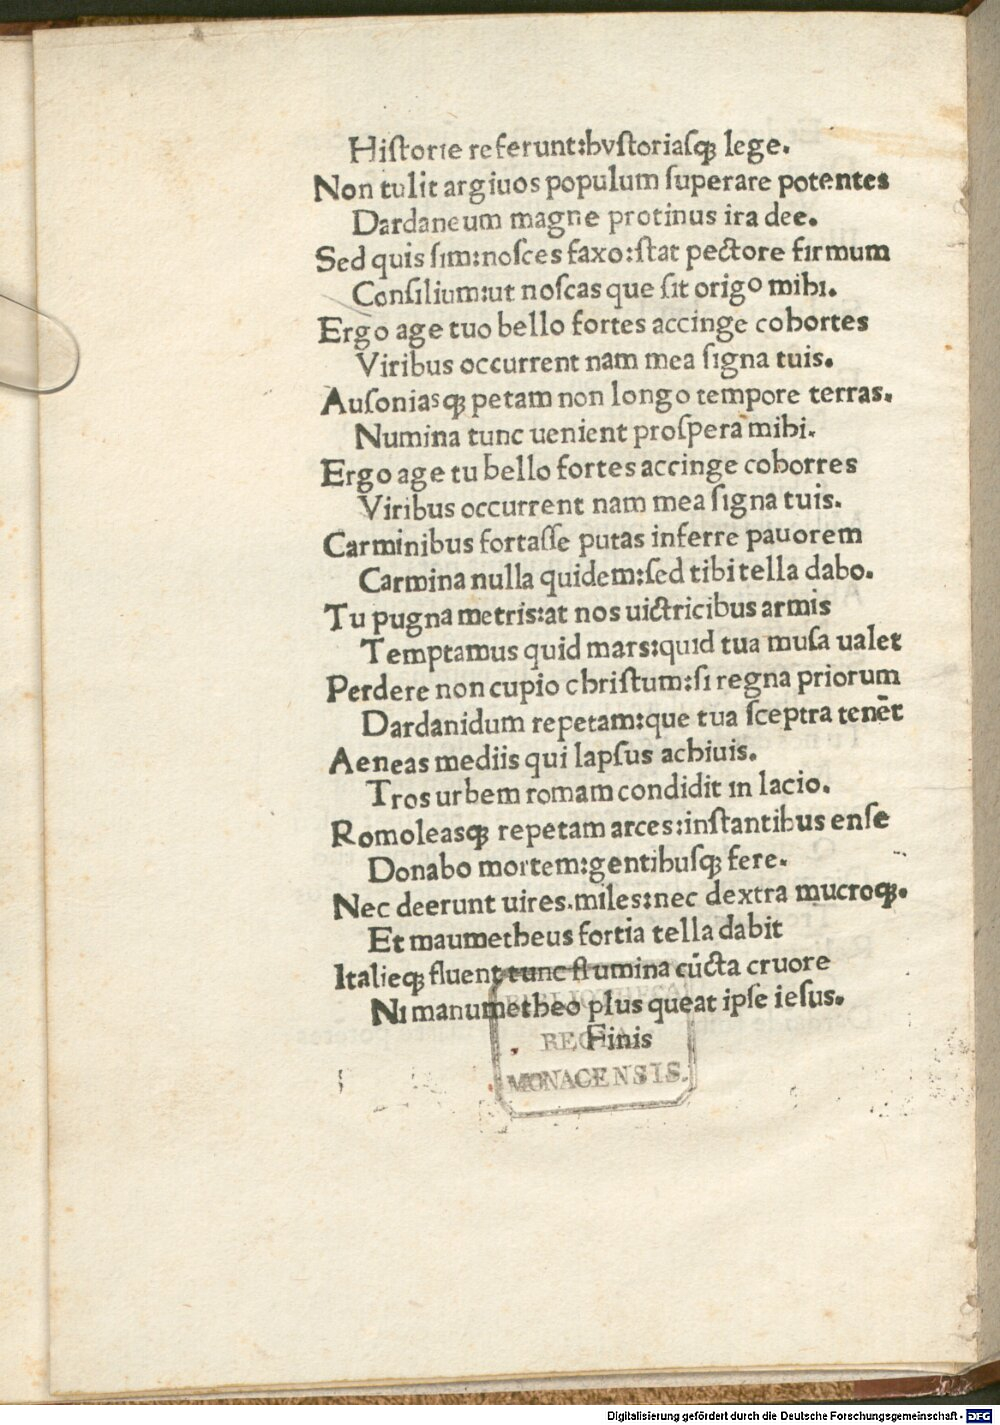 Hiſtorie referunt:hyſtoriaſqꝫ lege.
Non tulit argiuos populum ſuperare potentes
Dardaneum magne protinus ira dee.
Sed quis ſim:noſces faxo:ſtat pectore firmum
Conſilium:ut noſcas que ſit origo mihi.
Ergo age tuo bello fortes accinge cohortes
Viribus occurrent nam mea ſigna tuis.
Auſoniasqꝫ petam non longo tempore terras.
Numina tunc uenient proſpera mihi.
Ergo age tu bello fortes accinge cohorres
Viribus occurrent nam mea ſigna tuis.
Carminibus fortaſſe putas inferre pauorem
Carmina nulla quidem:ſed tibi tella dabo.
Tu pugna metris:at nos uictricibus armis
Temptamus quid mars:quid tua muſa ualet
Perdere non cupio chriſtum:ſi regna priorum
Dardanidum repetam:que tua ſceptra tenēt
Aeneas mediis qui lapſus achiuis.
Tros urbem romam condidit in lacio.
Romoleasqꝫ repetam arces:inſtantibus enſe
Donabo mortem:gentibuſqꝫ fere.
Nec deerunt uires.miles:nec dextra mucroqꝫ.
Et maumetheus fortia tella dabit
Italieqꝫ fluent tunc flumina cūcta cruore
Ni manumetheo plus queat ipſe ieſus.
Finis
BIBLIOTHECA
REGIA
MONACENSIS.
Digitalisierung gefördert durch die Deutsche Forschungsgemeinschaft - DFG